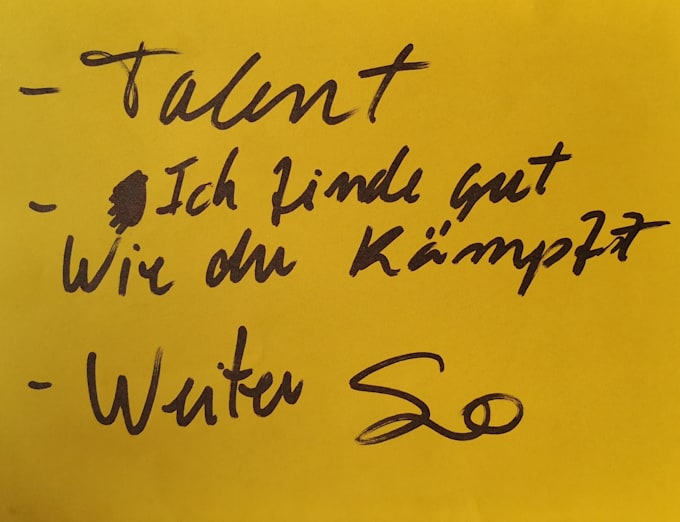 - Talent
- Ich finde gut
Wie du Kämpfst
- Weiter So